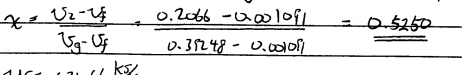 x = (v2 - vf) / (vg - vf) = (0.2066 - 0.001091) / (0.39248 - 0.001091) = 0.5250